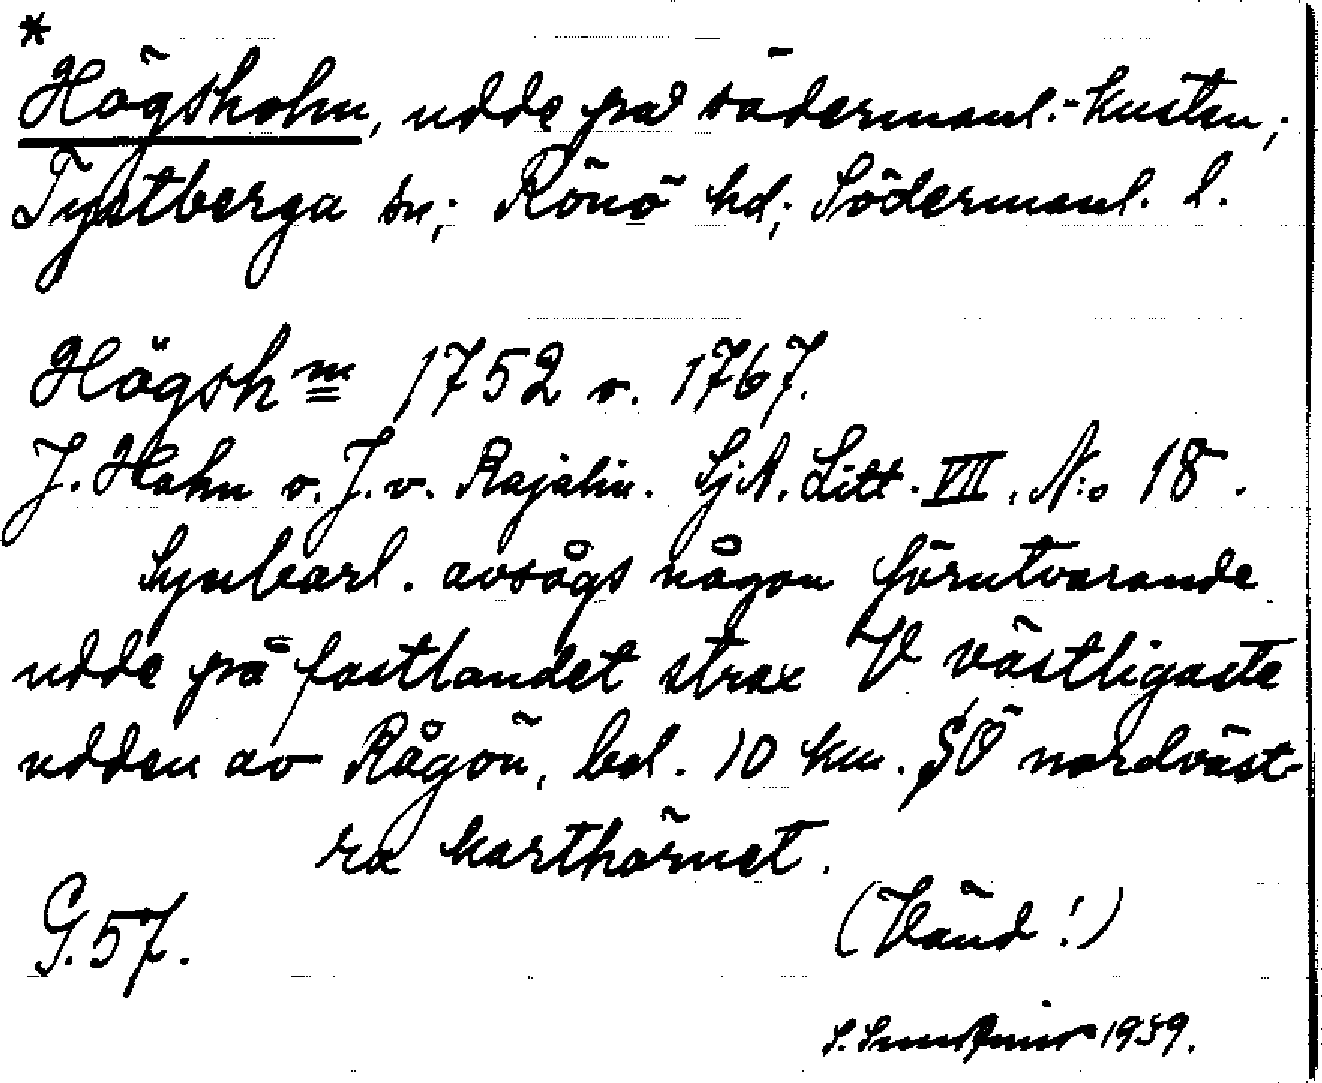 *
Högsholm, udde på södermanl.-kusten;
Tystberga sn; Rönö hd; Södermanl. l.
Högshm 1752 o. 1767.
J. Hahn o. J. v. Rajalin. SjA. Litt. VII. N:o 18.
Synbarl. avsågs någon förutvarande
udde på fastlandet strax V västligaste
udden av Rågön, bel. 10 km. SO nordväst-
ra karthörnet.
G. 57.
(Vänd!)
S. 1959.